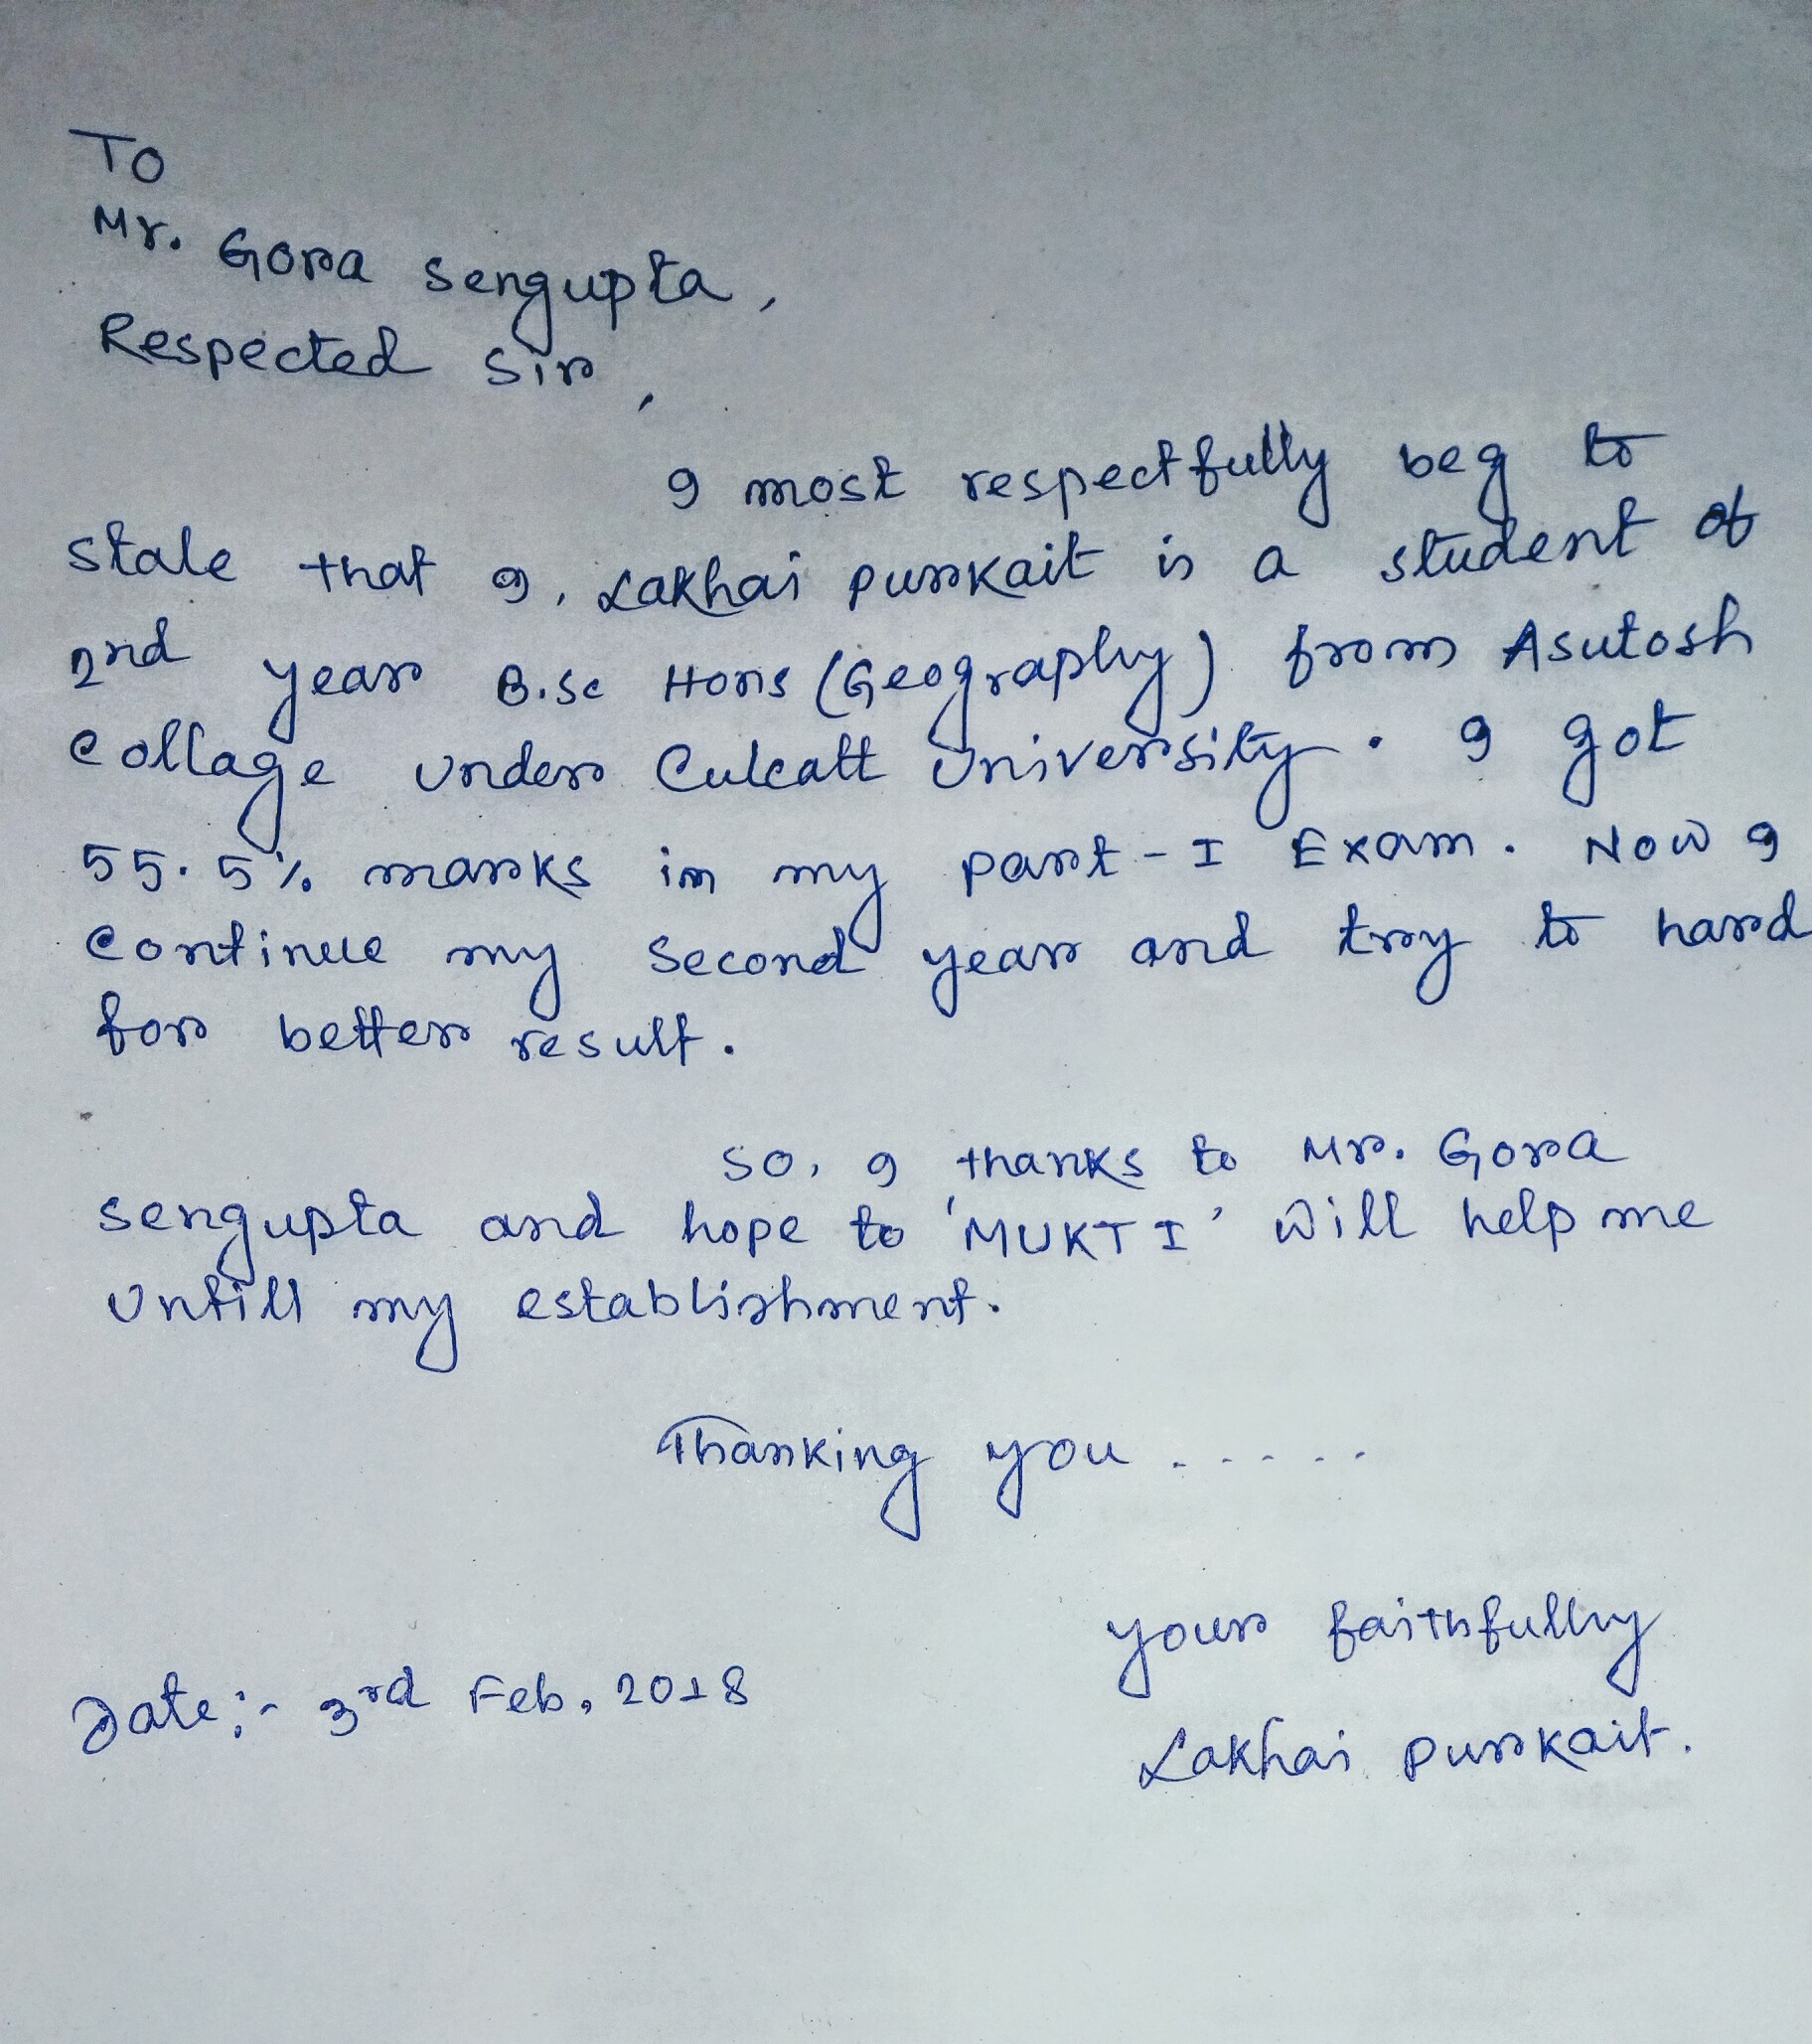 To
Mr. Gora Sengupta,
Respected Sir,
I most respectfully beg to
state that I, Lakhai Purkait is a student of
2nd year B.Sc Hons (Geography) from Asutosh
Collage Under Culcatt University. I got
55.5% marks in my part-I Exam. Now I
Continue my Second year and try to hard
for better result.
So, I thanks to Mr. Gora
Sengupta and hope to 'MUKTI' Will help me
Untill my establishment.
Thanking you .....
your faithfully
Date:- 3rd Feb, 2018
Lakhai Purkait.